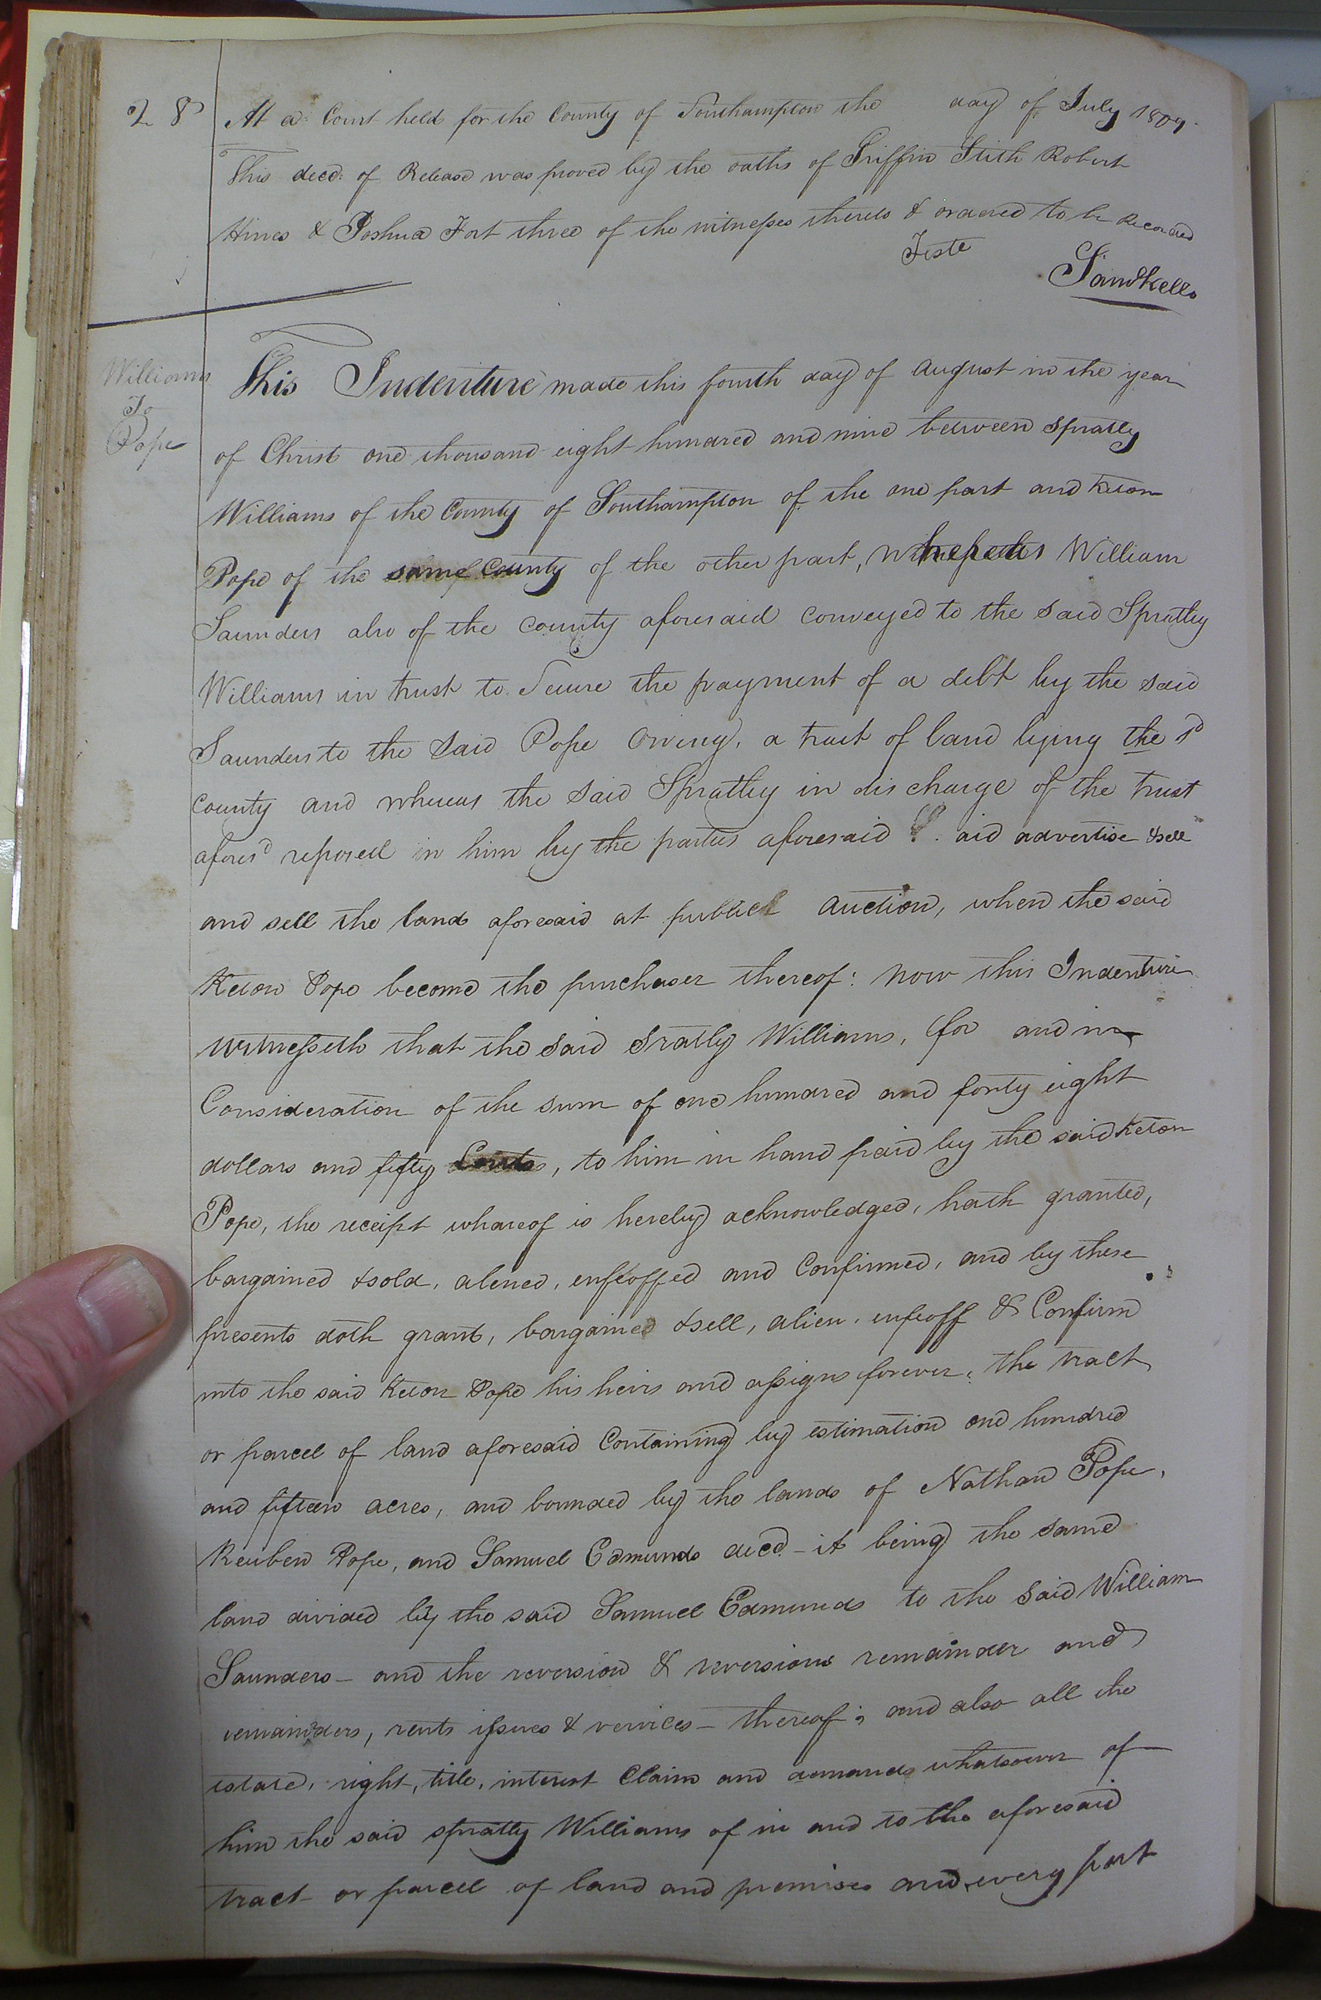 28
At a Court held for the County of Southampton the day of July 1809.
This deed of Release was proved by the oaths of Griffin Stith Robert
Hines & Joshua Fort three of the witnesses thereto & ordered to be Recorded
Teste
Saml Kello
Williams
To
Pope
This Indenture made this fourth day of August in the year
of Christ one thousand eight hundred and nine between Spratly
Williams of the County of Southampton of the one part and Keton
Pope of the same County of the other part, William
Saunders also of the County aforesaid conveyed to the said Spratley
Williams in trust to Secure the payment of a debt by the said
Saunders to the said Pope Owing, a tract of land lying the sd
County and whereas the said Spratley in discharge of the trust
aforesd reposed in him by the parties aforesaid did advertise & sell
and sell the land aforesaid at publick auction, when the said
Keton Pope become the purchaser thereof: Now this Indenture
Witnesseth that the said Sratly Williams, for and in
Consideration of the sum of one hundred and forty eight
dollars and fifty Cents, to him in hand paid by the said Keton
Pope, the receipt whareof is hereby acknowledged, hath granted,
bargained & sold, aliened, enfeoffed and Confirmed, and by these
presents doth grant, bargained & sell, alien, enfeoff & Confirm
unto the said Keton Pope his heirs and assigns forever, the tract
or parcel of land aforesaid Containing by estimation one hundred
and fifteen acres, and bounded by the lands of Nathan Pope,
Reuben Pope, and Samuel Edmunds decd - it being the same
land divided by the said Samuel Edmunds to the said William
Saunders - and the reversion & reversions remainder and
remainders, rents issues & services - thereof; and also all the
estate, right, title, interest Claim and demands whatsoever of
him the said spratly Williams of in and to the aforesaid
tract or parcel of land and premises and every part